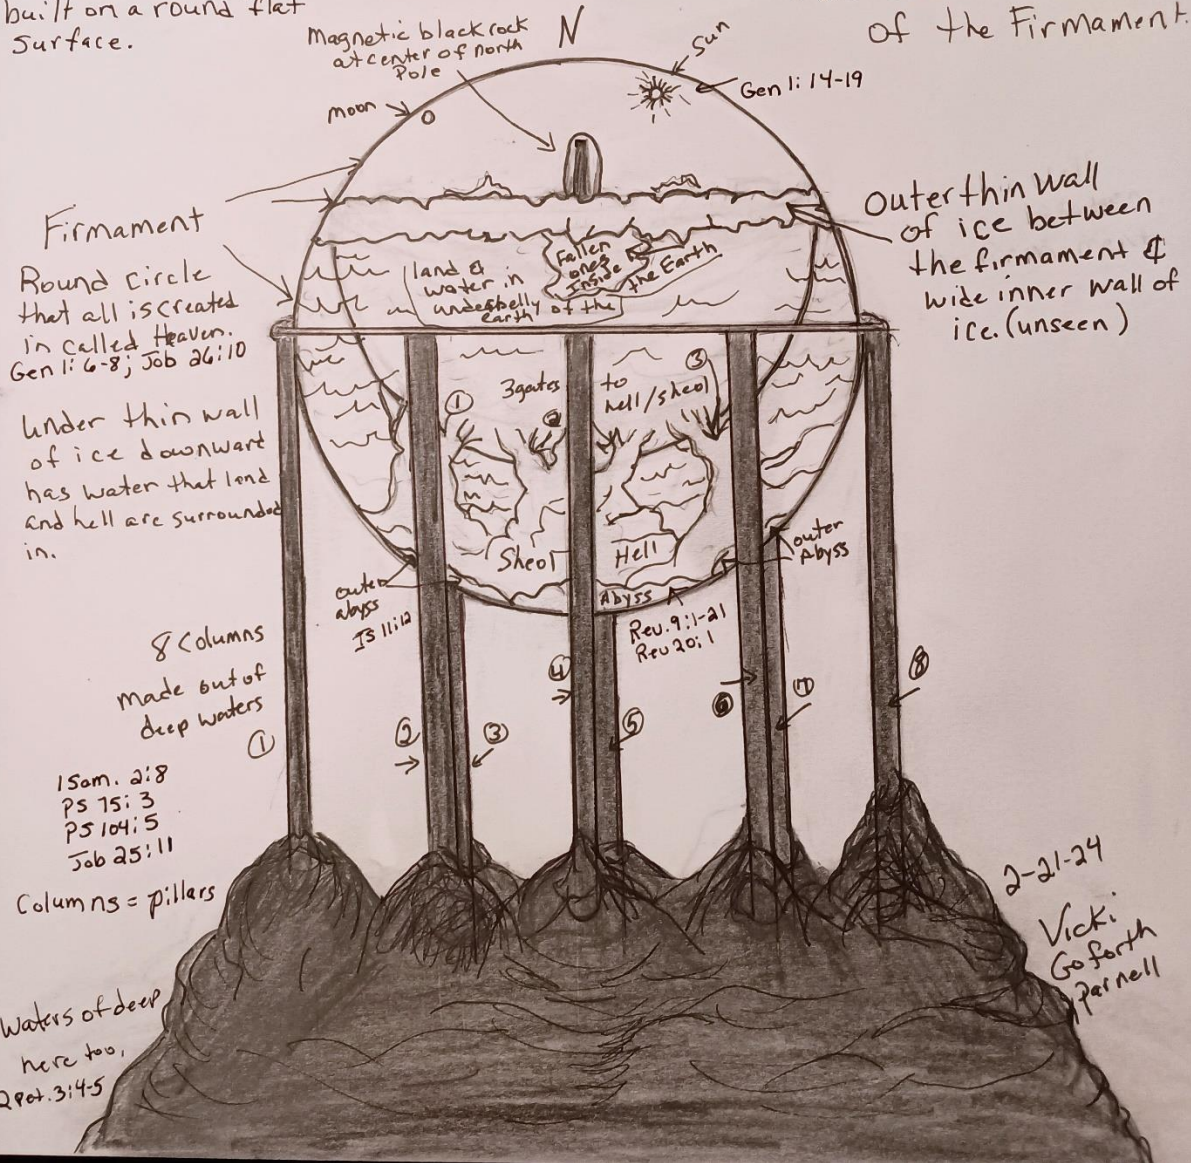 built on a round flat
surface.
Magnetic black rock
at center of north
Pole
N
Sun
of the Firmament.
Gen 1:14-19
moon
Firmament
Round Circle
that all is created
in called Heaven.
Gen 1:6-8; Job 26:10
Outer thin wall
of ice between
the firmament &
wide inner wall of
ice. (unseen)
Fallen
ones
Inside
the Earth
land &
water in
underbelly of the
earth
under thin wall
of ice downward
has water that land
and hell are surrounded
in.
3 gates to
hell/sheol
1
2
3
Sheol
Hell
outer
abyss
Is 11:12
Abyss
outer
Abyss
Rev. 9:1-21
Rev 20:1
8 Columns
made out of
deep waters
1
2
3
4
5
6
7
8
1 Sam. 2:8
PS 75:3
PS 104:5
Job 25:11
Columns = pillars
2-21-24
Vicki
Goforth
Parnell
Waters of deep
here too,
2 Pet. 3:4-5